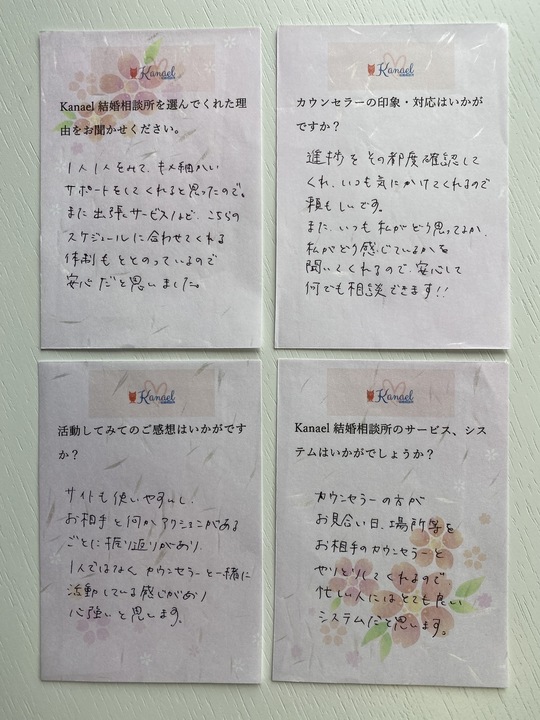 Kanael
Kanael 結婚相談所を選んでくれた理
由をお聞かせください。
1人1人をみて、キメ細かい
サポートをしてくれると思ったので。
また出張サービスなど、こちらの
スケジュールに合わせてくれる
体制もととのっているので
安心だと思いました。
Kanael
カウンセラーの印象・対応はいかが
ですか？
進捗をその都度確認して
くれ、いつも気にかけてくれるので
頼もしいです。
また、いつも私がどう思ってるか、
私がどう感じているかを
聞いてくれるので、安心して
何でも相談できます!!
Kanael
活動してみてのご感想はいかがです
か？
サイトも使いやすいし、
お相手と何かアクションがある
ごとに振り返りがあり、
1人ではなくカウンセラーと一緒に
活動している感じがあり
心強いと思います。
Kanael
Kanael 結婚相談所のサービス、シス
テムはいかがでしょうか？
カウンセラーの方が
お見合い日、場所等を
お相手のカウンセラーと
やりとりしてくれるので
忙しい人にはとても良い
システムだと思います。